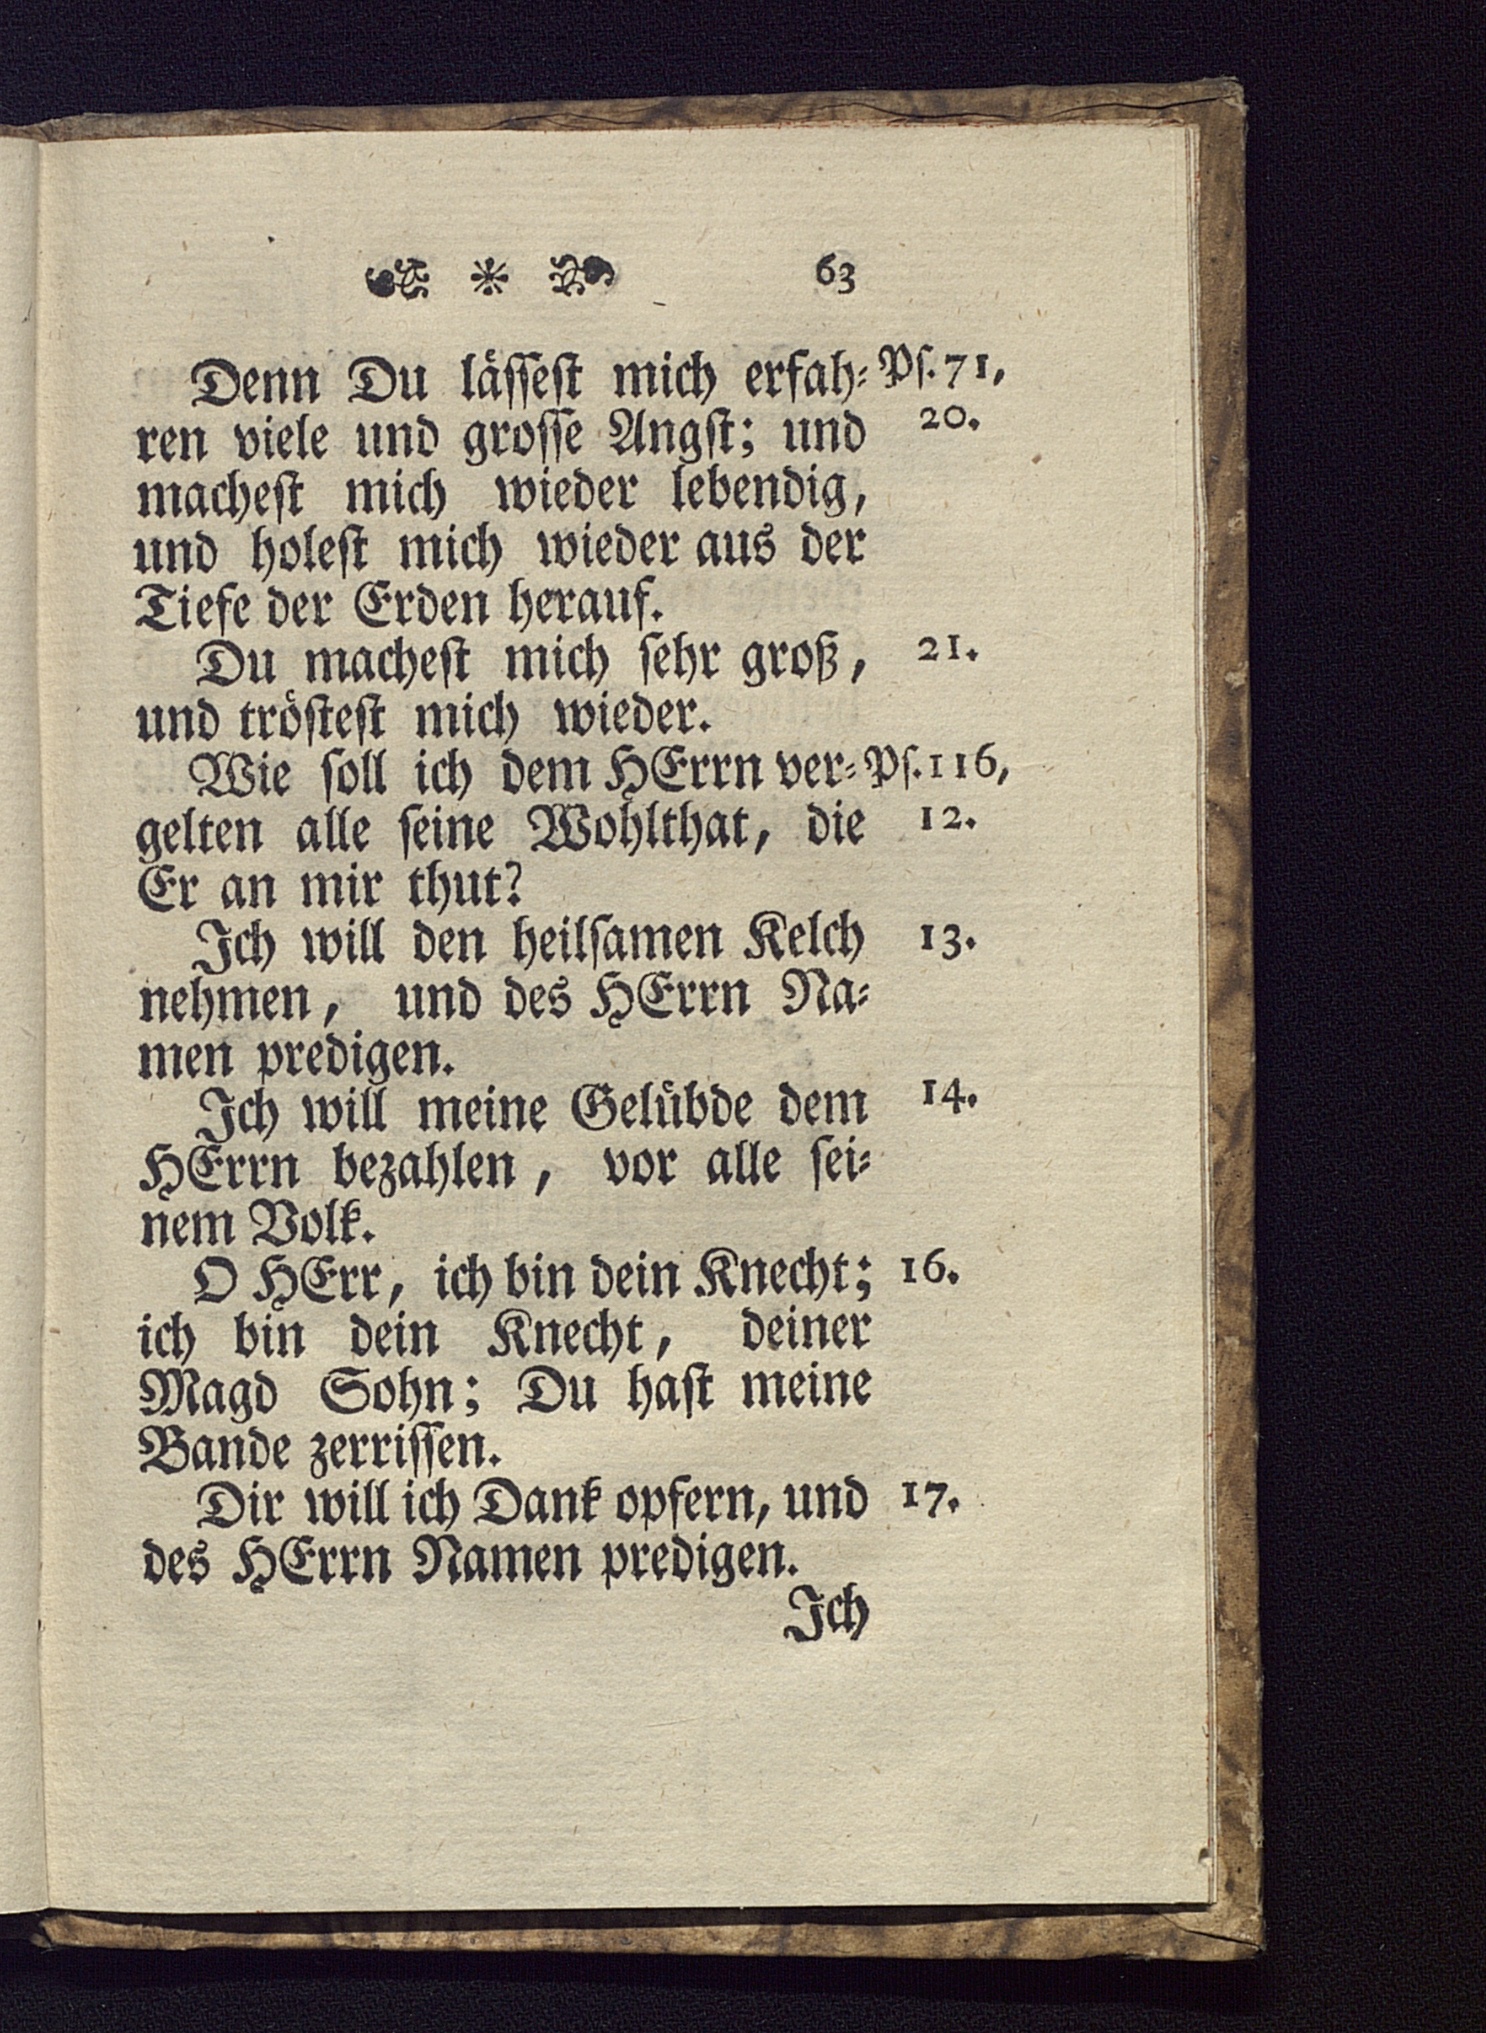 63
Denn Du läſſeſt mich erfah⸗ Pſ. 71,
ren viele und groſſe Angſt; und 20.
macheſt mich wieder lebendig,
und holeſt mich wieder aus der
Tiefe der Erden herauf.
Du macheſt mich ſehr groß, 21.
und tröſteſt mich wieder.
Wie ſoll ich dem HErrn ver⸗ Pſ. 116,
gelten alle ſeine Wohlthat, die 12.
Er an mir thut?
Ich will den heilſamen Kelch 13.
nehmen, und des HErrn Na⸗
men predigen.
Ich will meine Gelübde dem 14.
HErrn bezahlen, vor alle ſei⸗
nem Volk.
O HErr, ich bin dein Knecht; 16.
ich bin dein Knecht, deiner
Magd Sohn; Du haſt meine
Bande zerriſſen.
Dir will ich Dank opfern, und 17.
des HErrn Namen predigen.
Ich